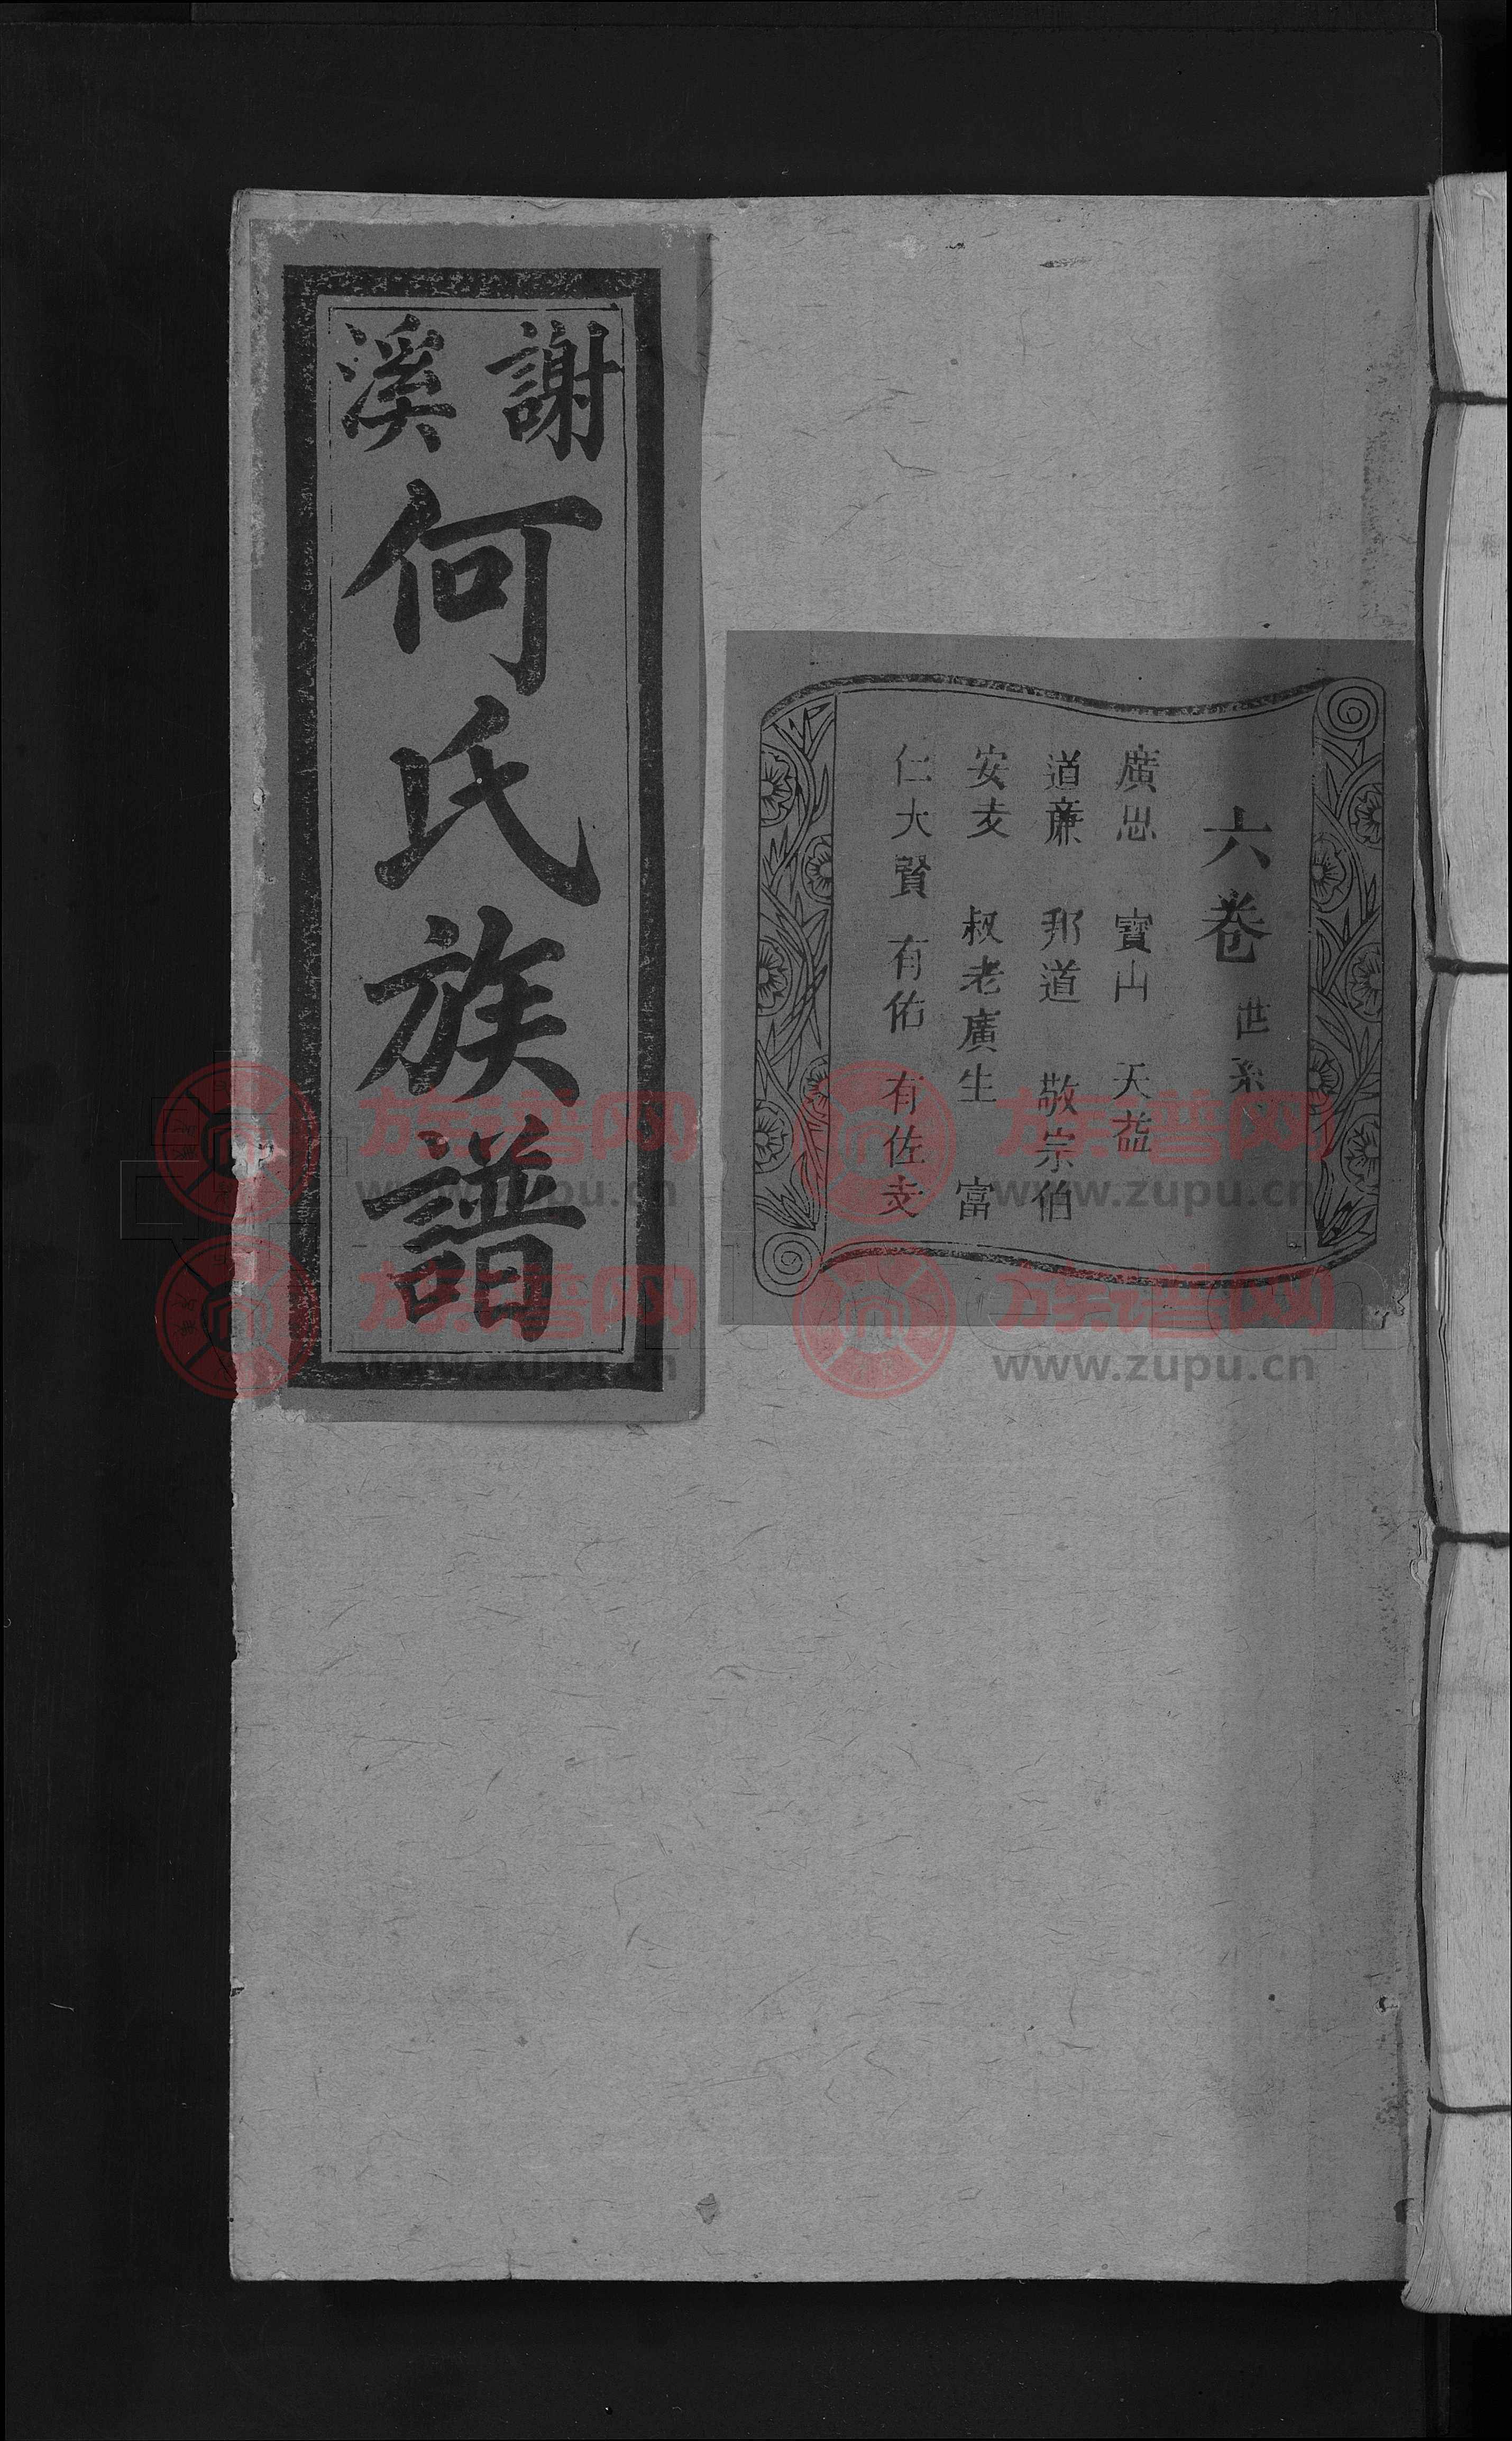 謝溪
何氏族譜
六卷 世系
廣思 寶山 天益
道廉 邦道 敬宗伯
安支 叔老廣生 富
仁大賢 有佑 有佐支
族谱网 族谱网
www.zupu.cn www.zupu.cn
族谱网 族谱网
www.zupu.cn www.zupu.cn